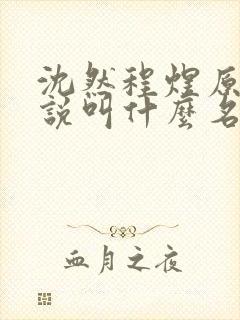 沈然程煌原
說叫什麼名
血月之夜